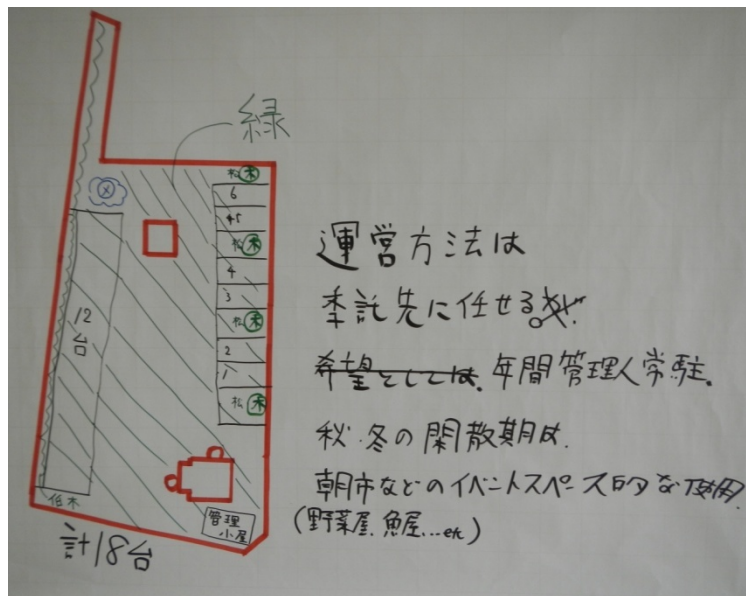 緑
松 木
6
5
松 木
4
3
松 木
2
1
松 木
12
台
低木
管理
小屋
計18台
運営方法は
委託先に任せる。
希望としては、年間管理人常駐。
秋・冬の閑散期は、
朝市などのイベントスペース的な使用。
(野菜屋、魚屋...etc)